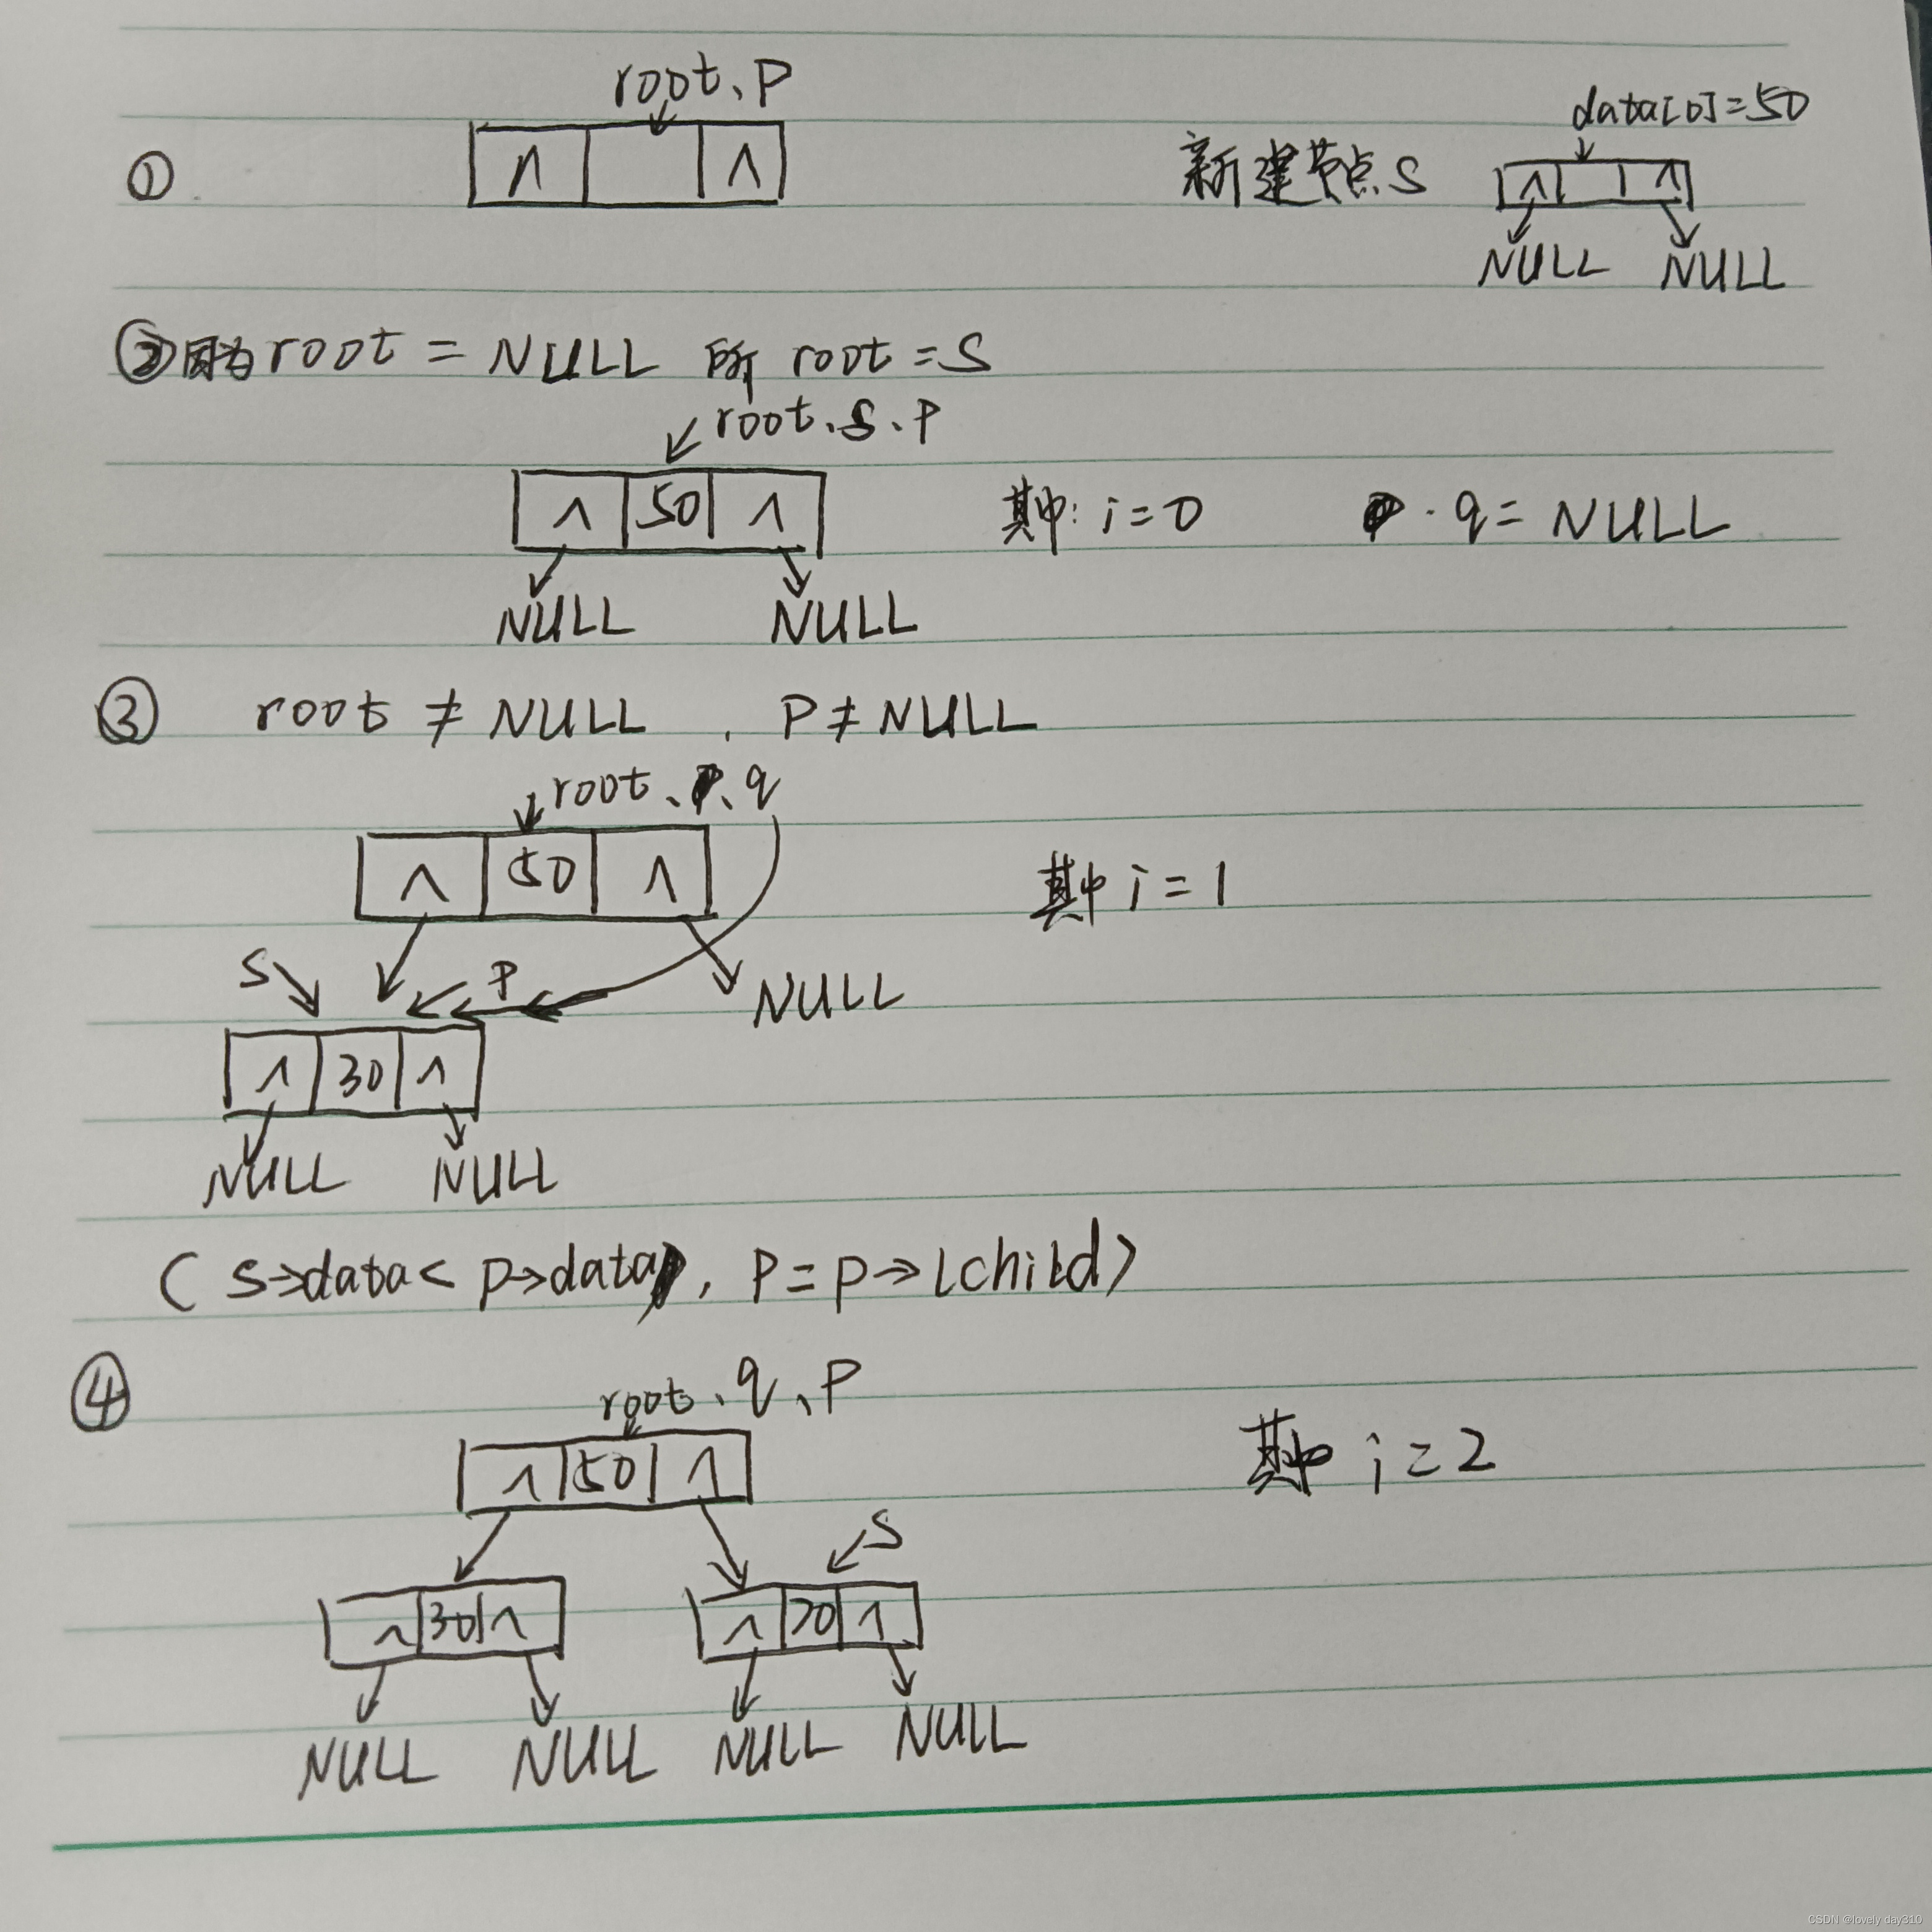 root、P
data[0]=50
① ∧ ∧ 新建节点S ∧ ∧
NULL NULL
②因为root = NULL 所 root = S
root、S、P
∧ 50 ∧ 其中: i=0 q= NULL
NULL NULL
③ root ≠ NULL , P≠NULL
root、P、q
∧ 50 ∧ 其中 i=1
S P NULL
∧ 30 ∧
NULL NULL
( S→data< p→data, P=p→lchild)
④ root、q、P
∧ 50 ∧ 其中 i=2
S
∧ 30 ∧ ∧ 70 ∧
NULL NULL NULL NULL
CSDN @lovely day310